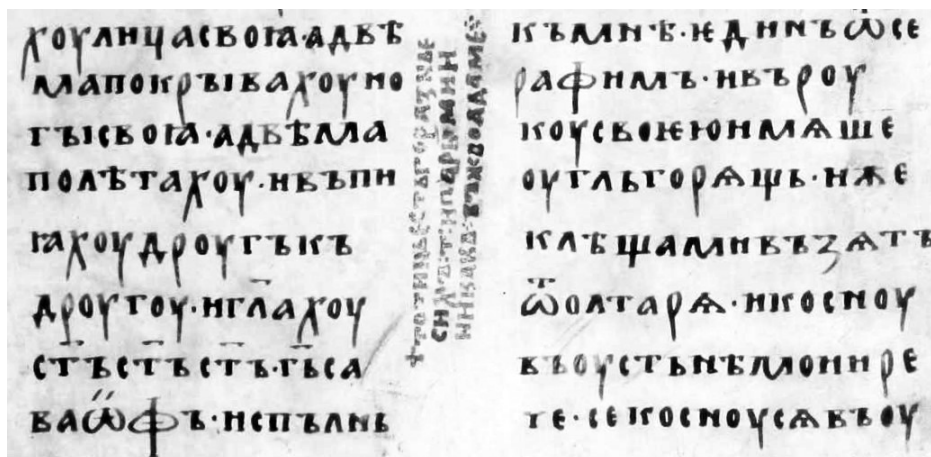 хоулицасвоꙗ·адвѣ
мапокрꙑвахоуно
гꙑсвоꙗ·адвѣма
полѣтахоу·ивъпи
ꙗхоудроугъкъ
дроугоу·игл҃ахоу
ст҃ъст҃ъст҃ъ·г҃ьса
ваѡ̈фъ·испълнь
къмнѣ·ѥдинъѿсе
рафимъ·ивъроу
коусвоѥюимѧше
оугльгорѧщь·иже
клѣщамивъзѧтъ
ѿолтарѧ·икосноу
въоустьнѣмоиире
че·секосноусѧвъоу